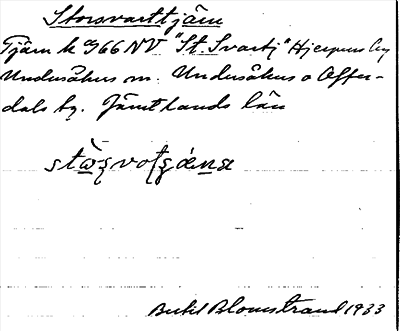 Storsvarttjärn
Tjärn k 966 NV "St. Svartj" Hjerpens by
Undersåkers sn. Undersåkers o Offer-
dals tg. Jämtlands län
Bertil Blomstrand 1933